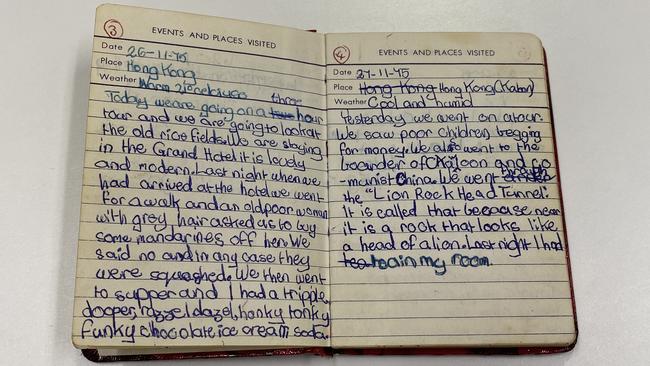 3
EVENTS AND PLACES VISITED
Date 26-11-75
Place Hong Kong
Weather Warm
three
Today we are going on a two hour
tour and we are going to look at
the old rice fields. We are staying
in the Grand Hotel it is lovely
and modern. Last night when we
had arrived at the hotel we went
for a walk and an old poor woman
with grey hair asked us to buy
some mandarines off her. We
said no and in any case they
were squashed. We then went
to supper and I had a tripple,
dooper, razzel dazel, honky tonky
funky chocolate ice cream soda.
4
EVENTS AND PLACES VISITED
Date 27-11-75
Place Hong Kong Hong Kong
Weather Cool and humid
Yesterday we went on a tour.
We saw poor children begging
for money. We also went to the
boarder of and co
-munist China. We went through
the "Lion Rock Head Tunnel".
It is called that because near
it is a rock that looks like
a head of a lion. Last night I had
tea tea in my room.